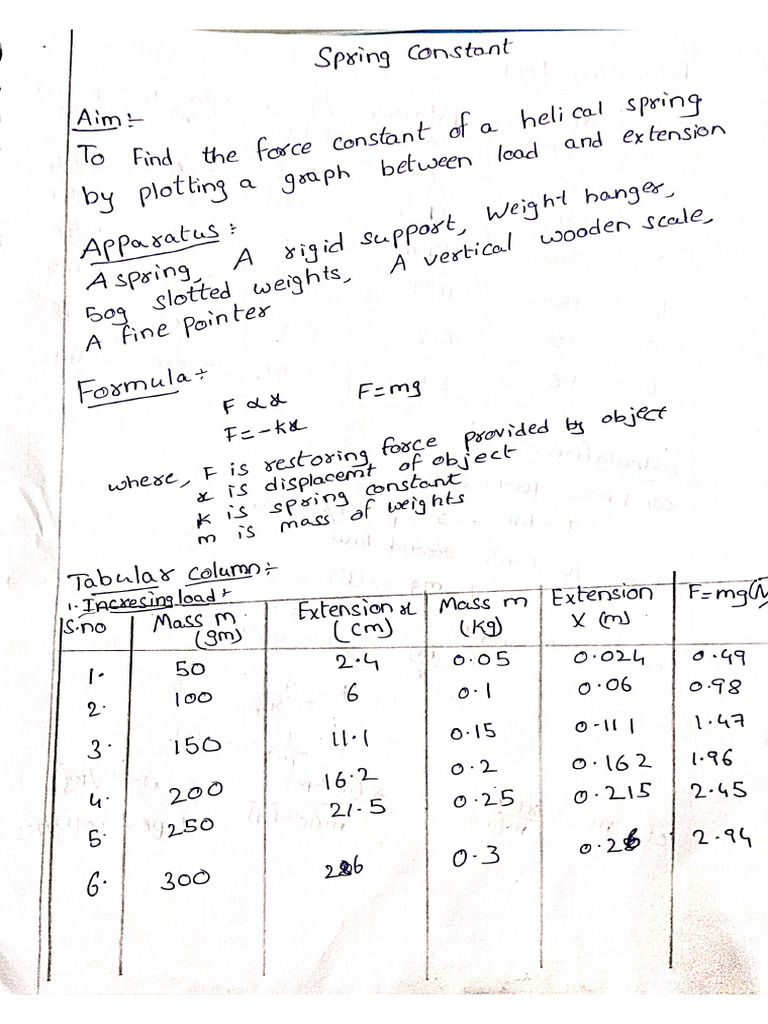 Spring Constant
Aim:-
To Find the force constant of a helical spring
by plotting a graph between load and extension
Apparatus:
A spring, A rigid support, Weight hanger,
50g slotted weights, A vertical wooden scale,
A fine pointer
Formula:-
F ∝ x F=mg
F=-kx
where, F is restoring force provided by object
x is displacemt of object
k is spring constant
m is mass of weights
Tabular column:-
1. Incresing load:-
S.no Mass m (gm) Extension x (cm) Mass m (kg) Extension X (m) F=mg(N
1. 50 2.4 0.05 0.024 0.49
2. 100 6 0.1 0.06 0.98
3. 150 11.1 0.15 0.111 1.47
4. 200 16.2 0.2 0.162 1.96
5. 250 21.5 0.25 0.215 2.45
6. 300 0.3 2.94